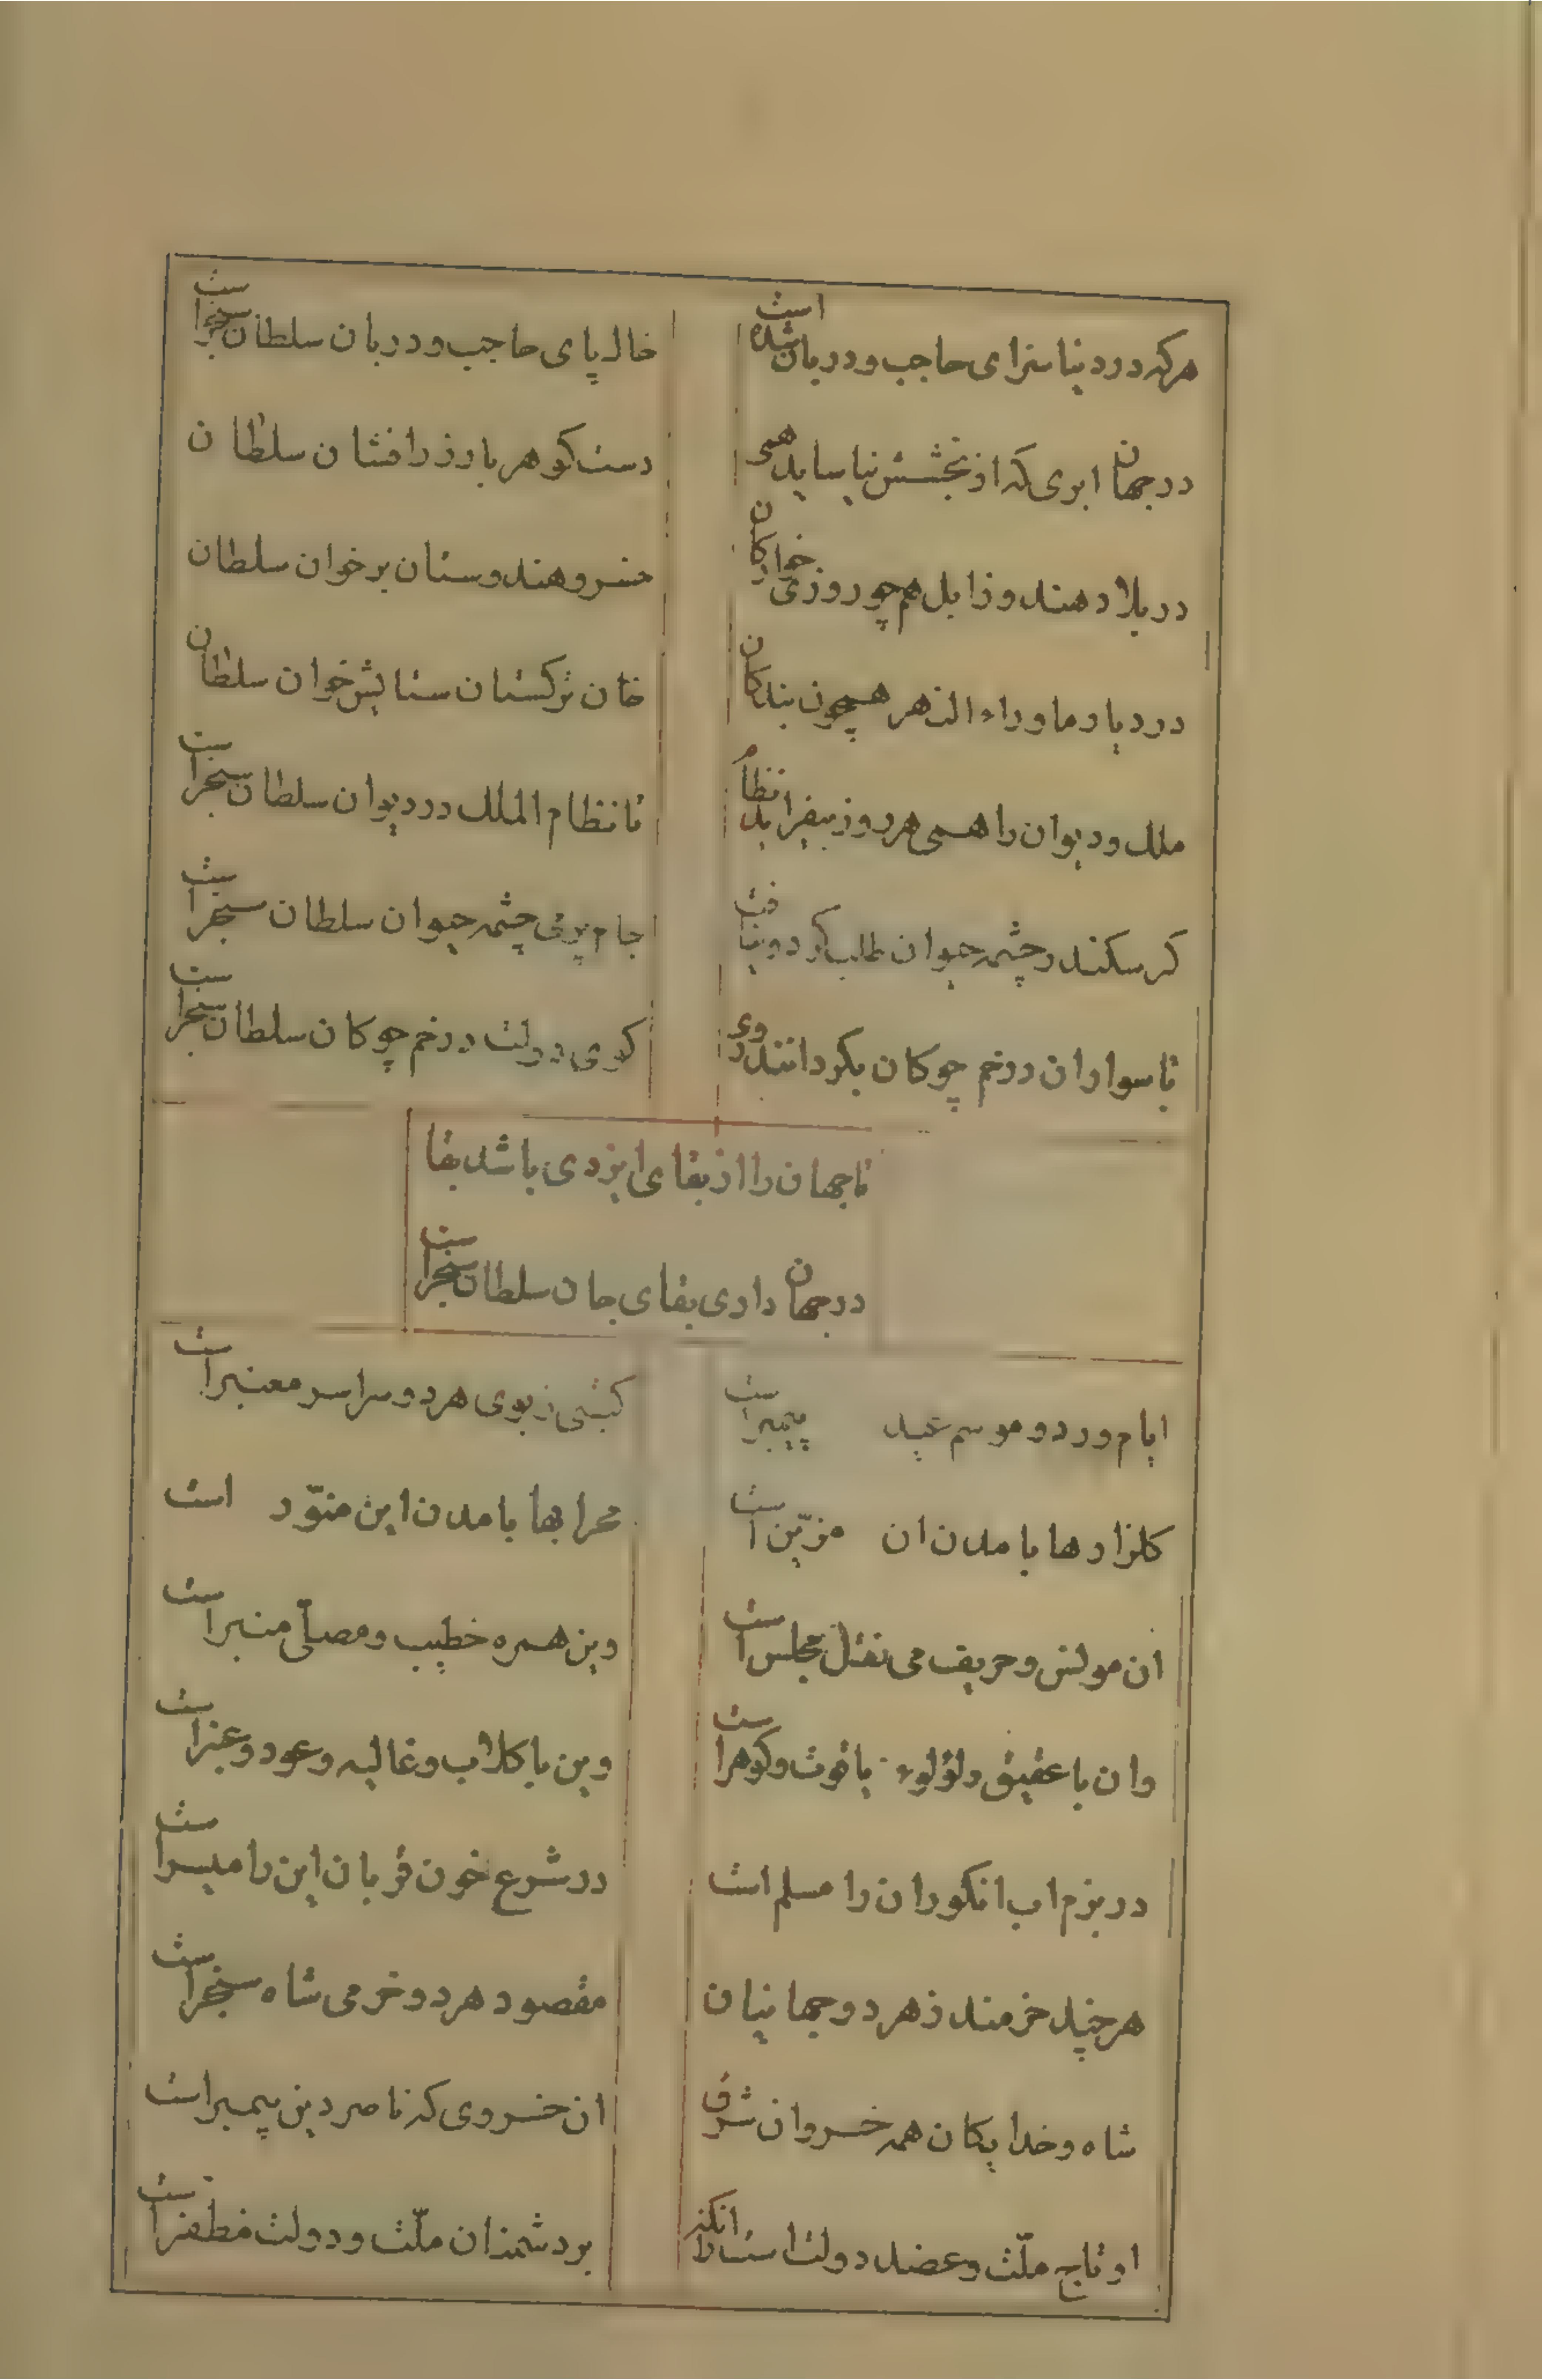 هرکه در دنیا سزای حاجب و دربان شده است
خاک پای حاجب و دربان سلطان سنجراست
در جهان ابری که از بخشش نیاساید همی
دست کوهر بار زرافشان سلطان
در بلاد هند و زابل هم چو روزی خوارکان
خسرو هندوستان بر خوان سلطان
در دیار ماوراء النهر همچون بندکان
خان ترکستان ستایش خوان سلطان
ملک و دیوان را همی هر روز بیفزاید نظام
تا نظام الملک در دیوان سلطان سنجراست
کر سکندر چشمه حیوان طلب کرد و نیافت
جام پر می چشمه حیوان سلطان سنجراست
تا سواران در خم چوکان بکردانند کوی
کوی دولت در خم چوکان سلطان سنجراست
تا جهان را از بقای ایزدی باشد بقا
در جهان داری بقای جان سلطان سنجراست
ایام ورد و موسم عید پیمبراست
کیتی ز بوی هر دو سراسر معنبراست
کلزارها بامدن ان مزیّن است
محرابها بامدن این منوّر است
ان مونس و حریف می نقل مجلس است
وین همره خطیب و مصلّی منبراست
وان با عقیق و لؤلوء یاقوت و کوهراست
وین با کلاب و غالیه و عود و عنبراست
در بزم اب انکور ان را مسلم است
در شرع خون قربان این را میسراست
هر چند خرمند ز هر دو جهانیان
مقصود هر دو خرمی شاه سنجراست
شاه و خدایکان همه خسروان شرق
ان خسروی که ناصر دین پیمبراست
او تاج ملّت و عضد دولت است زانکه
بر دشمنان ملّت و دولت مظفراست